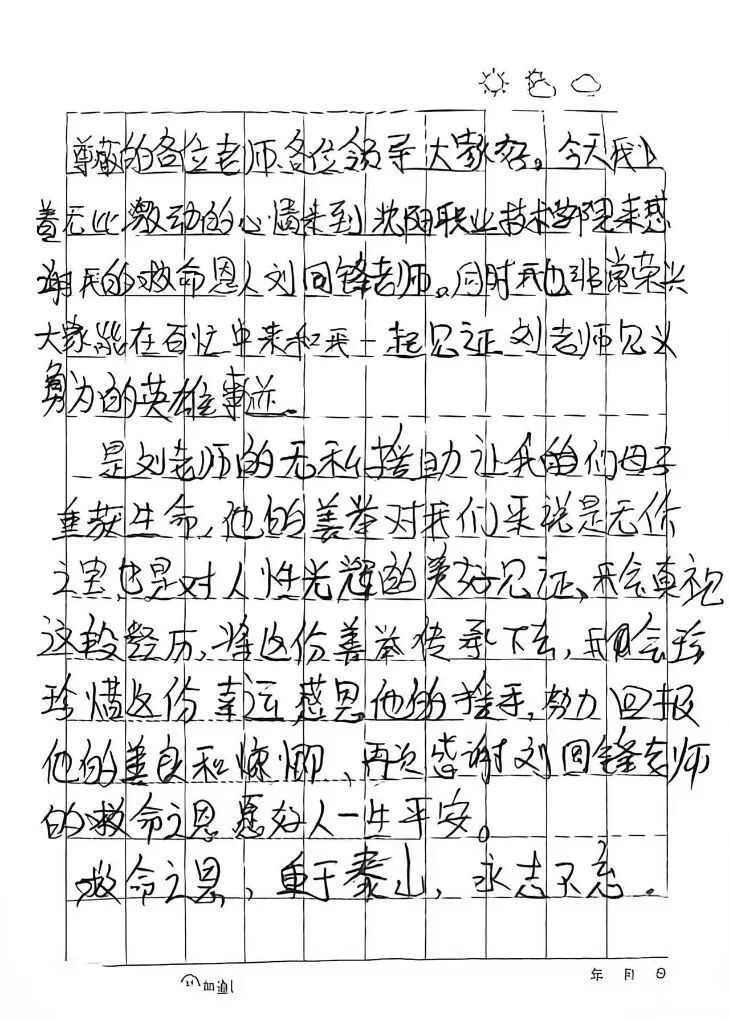 尊敬的各位老师各位领导大家好。今天我
着无比激动的心情来到沈阳职业技术学院来感
谢我的救命恩人刘回锋老师。同时我也非常荣兴
大家能在百忙中来和我一起见证刘老师见义
勇为的英雄事迹。
是刘老师的无私援助让我的们母子
重获生命,他的善举对我们来说是无价
之宝,也是对人性光辉的美好见证、我会真视
这段经历,将这份善举传承下去,我会珍
珍惜这份幸运,感恩他的援手,努力回报
他的善良和慷慨、再次感谢刘回锋老师
的救命之恩愿好人一生平安。
救命之恩,重于泰山,永志不忘.
加油
年 月 日